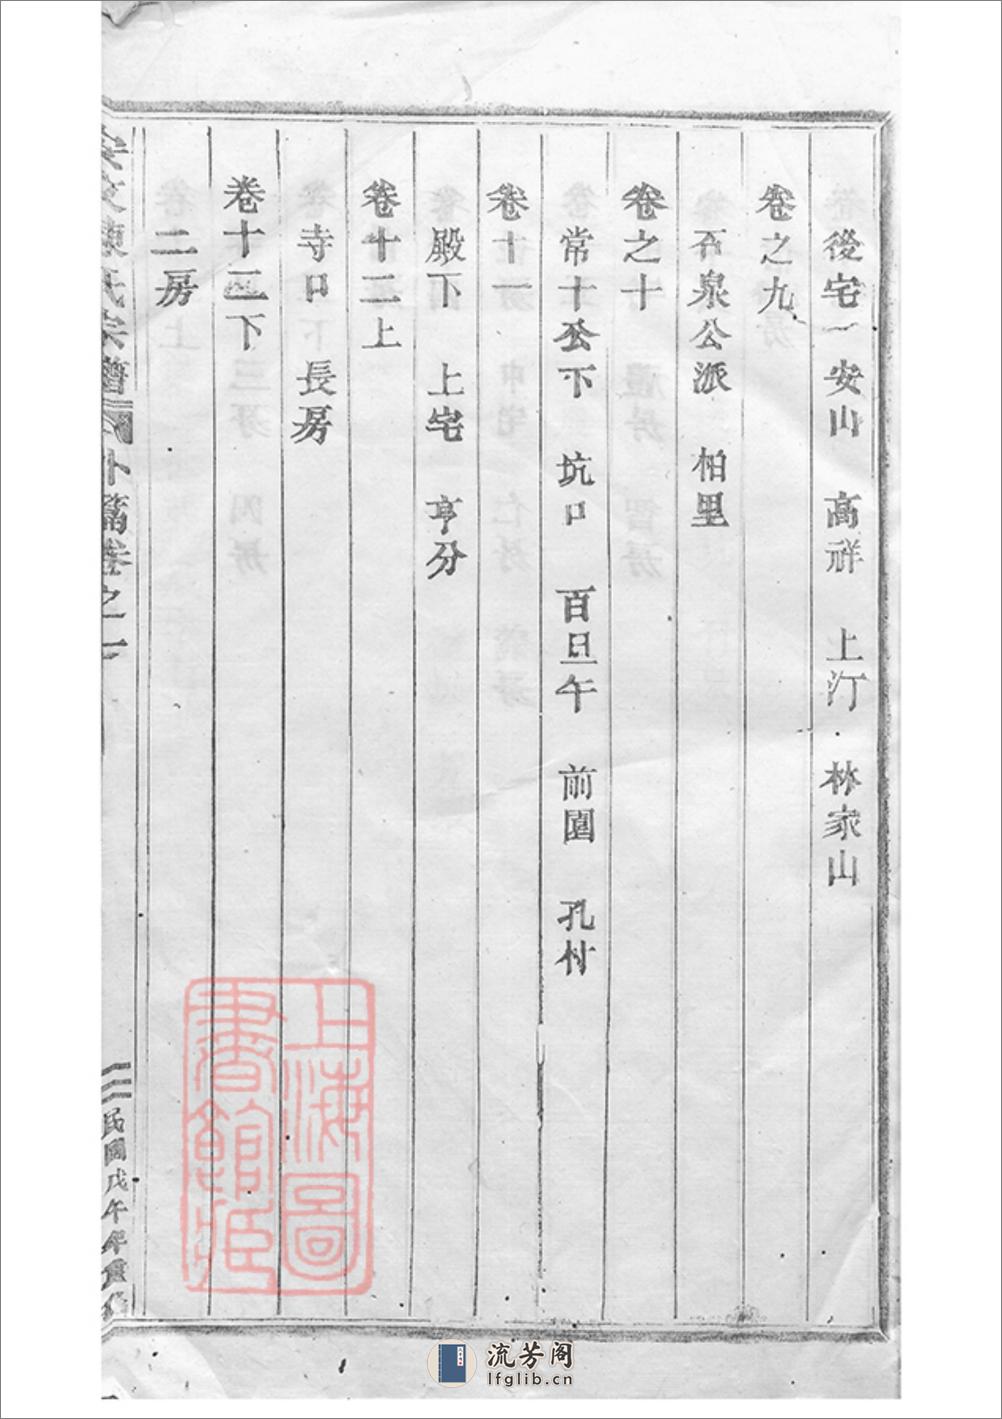 後宅一安山 高祥 上汀 林家山
卷之九
石泉公派 柏里
卷之十
常十公下 坑口 百旦午 前園 孔村
卷十一
殿下 上宅 亨分
卷十二上
寺口 長房
卷十二下
二房
安文陳氏宗譜 外篇卷之一
三 民國戊午年重修
上海圖書館藏
流芳阁
lfglib.cn